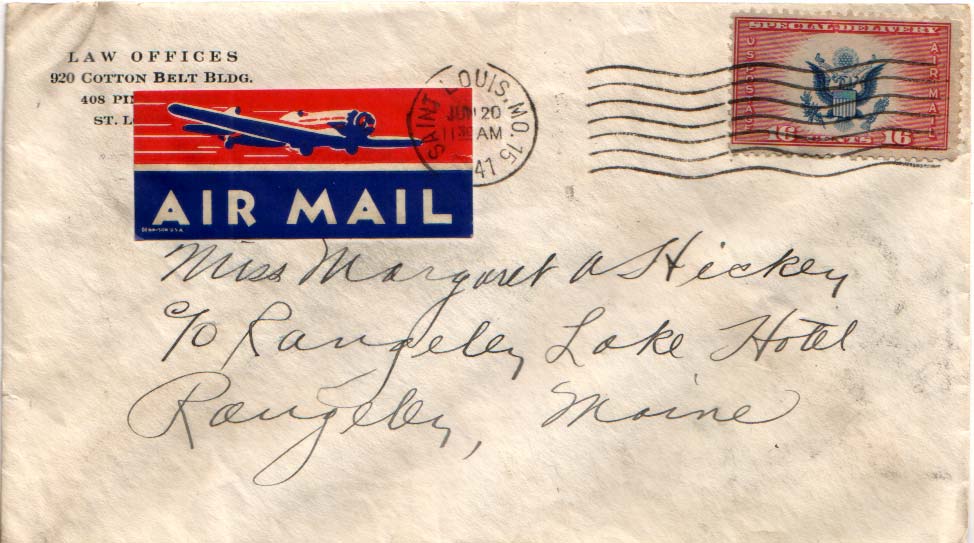 LAW OFFICES
920 COTTON BELT BLDG.
408
ST.
SAINT LOUIS, MO. 15
JUN 20
11 30 AM
'41
SPECIAL DELIVERY
US POSTAGE
AIR MAIL
16 CENTS 16
AIR MAIL
DENNISON U.S.A.
Miss Margaret A Hickey
c/o Rangeley Lake Hotel
Rangeley, Maine